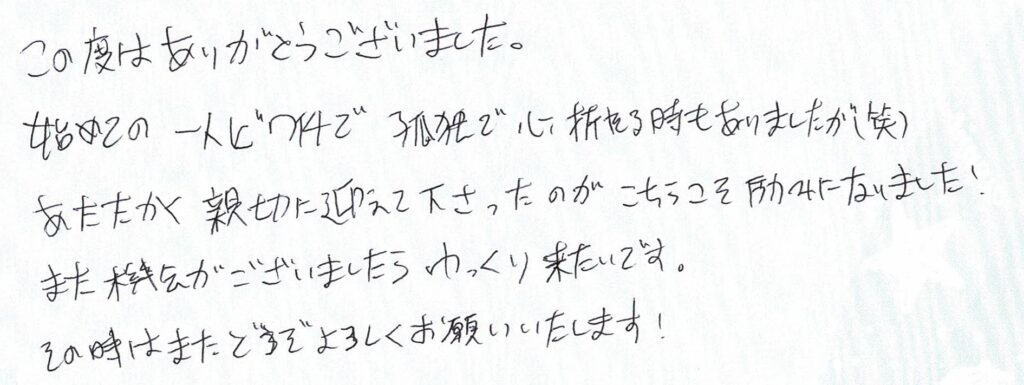 この度はありがとうございました。
始めての 一人ビワ伴で 孤独で 心折れる時もありましたが(笑)
あたたかく 親切に迎えて下さったのが こちらこそ励みになりました!
また機会がございましたら ゆっくり 来たいです。
その時はまたどうぞよろしくお願いいたします!